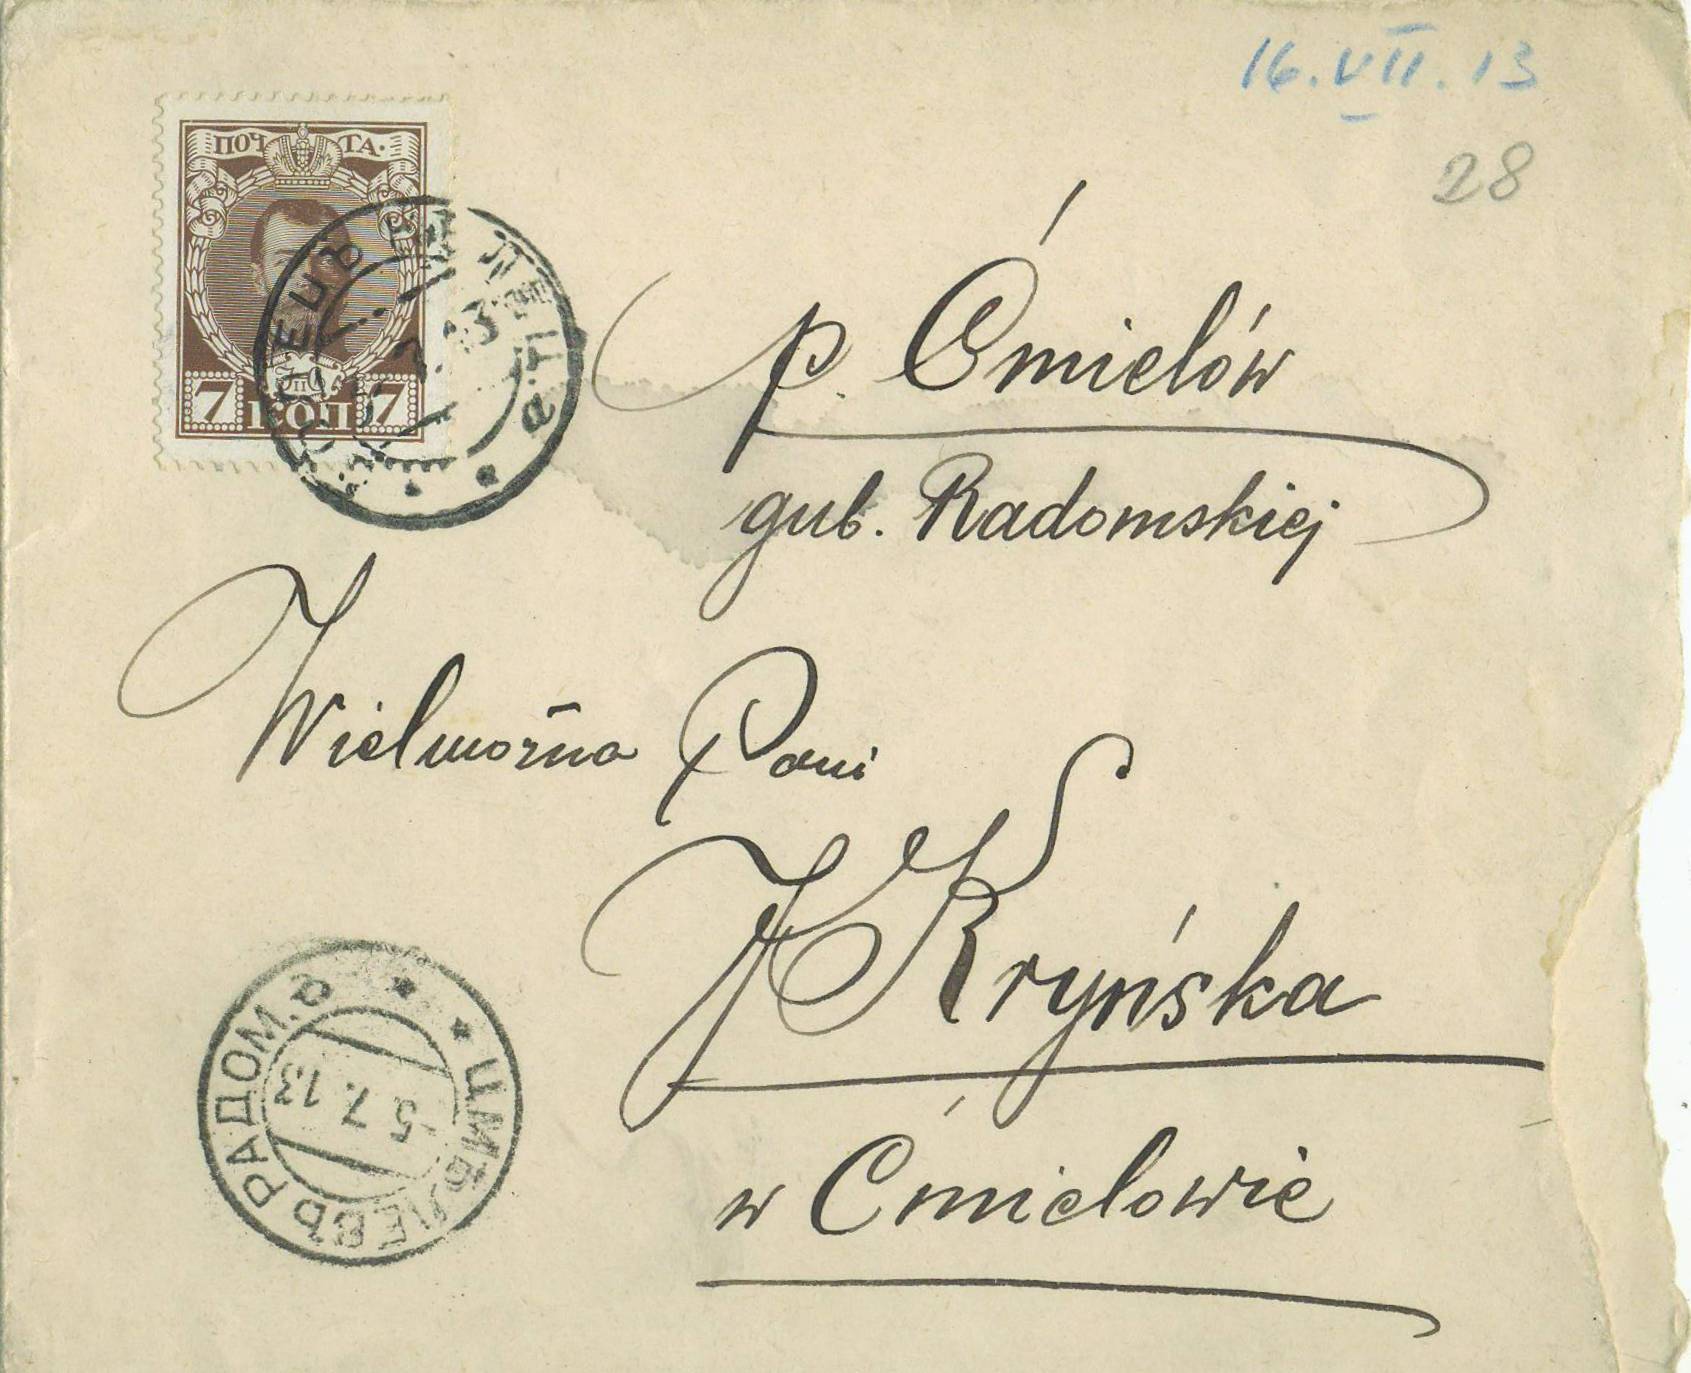 16.VII.13
28
ПОЧТА.
7 КОП 7
p. Ćmielów
gub. Radomskiej
Wielmożna Pani
J Kryńska
w Ćmielowie
ЦМѢЛЕВЪ РАДОМ.
5.7.13